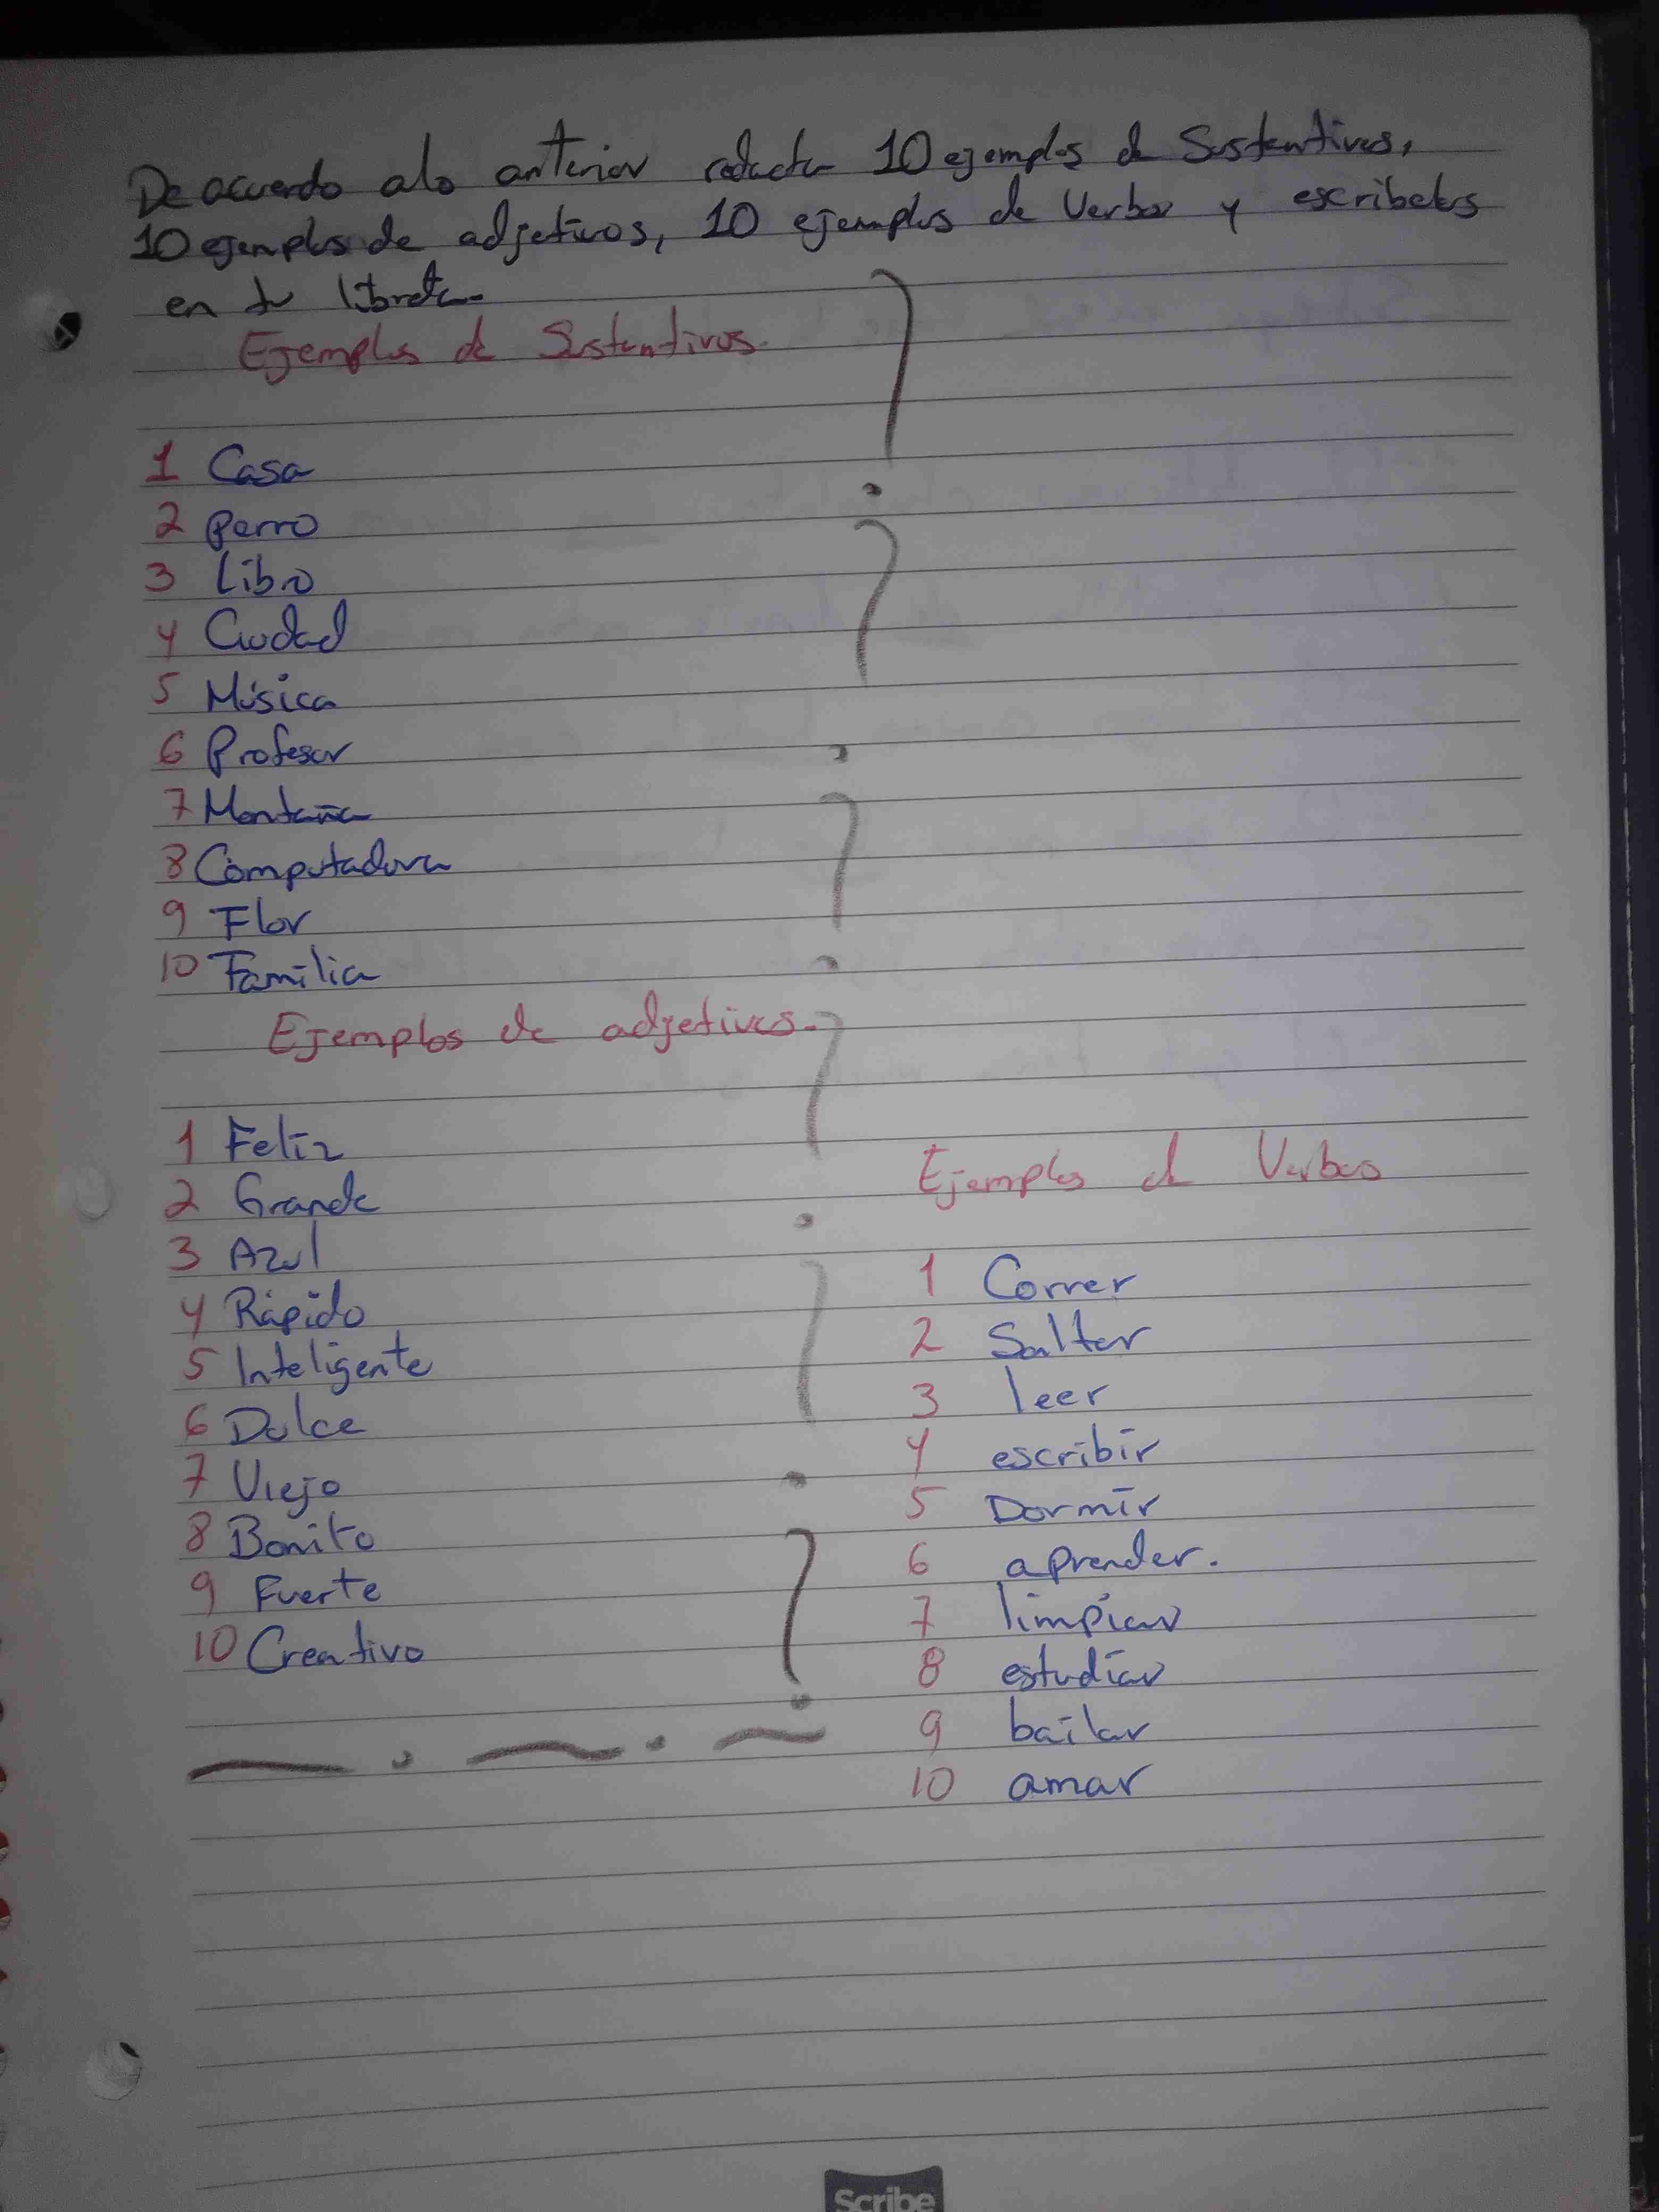 De acuerdo alo anterior redacta 10 ejemplos de Sustantivos,
10 ejemplos de adjetivos, 10 ejemplos de Verbos y escribelos
en tu libreta.
Ejemplos de Sustantivos.
1 Casa
2 Perro
3 Libro
4 Ciudad
5 Música
6 Profesor
7 Montaña
8 Computadora
9 Flor
10 Familia
Ejemplos de adjetivos.
1 Feliz
2 Grande
3 Azul
4 Rápido
5 Inteligente
6 Dulce
7 Viejo
8 Bonito
9 Fuerte
10 Creativo
Ejemplos de Verbos
1 Correr
2 Saltar
3 leer
4 escribir
5 Dormir
6 aprender.
7 limpiar
8 estudiar
9 bailar
10 amar
Scribe